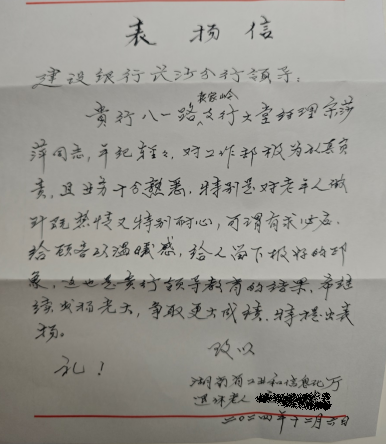 表扬信
建设银行长沙分行领导：
贵行八一路袁家岭支行大堂经理宗莎
萍同志，年纪轻轻，对工作却极为认真负
责，且业务十分熟悉，特别是对老年人做
到既热情又特别耐心，可谓有求必应，
给顾客以温暖感，给人留下极好的印
象，这也是贵行领导教育的结果，希继
续发扬光大，争取更大成绩，特提出表
扬。
致以
礼！
湖南省工业和信息化厅
退休老人
二〇二四年十二月六日